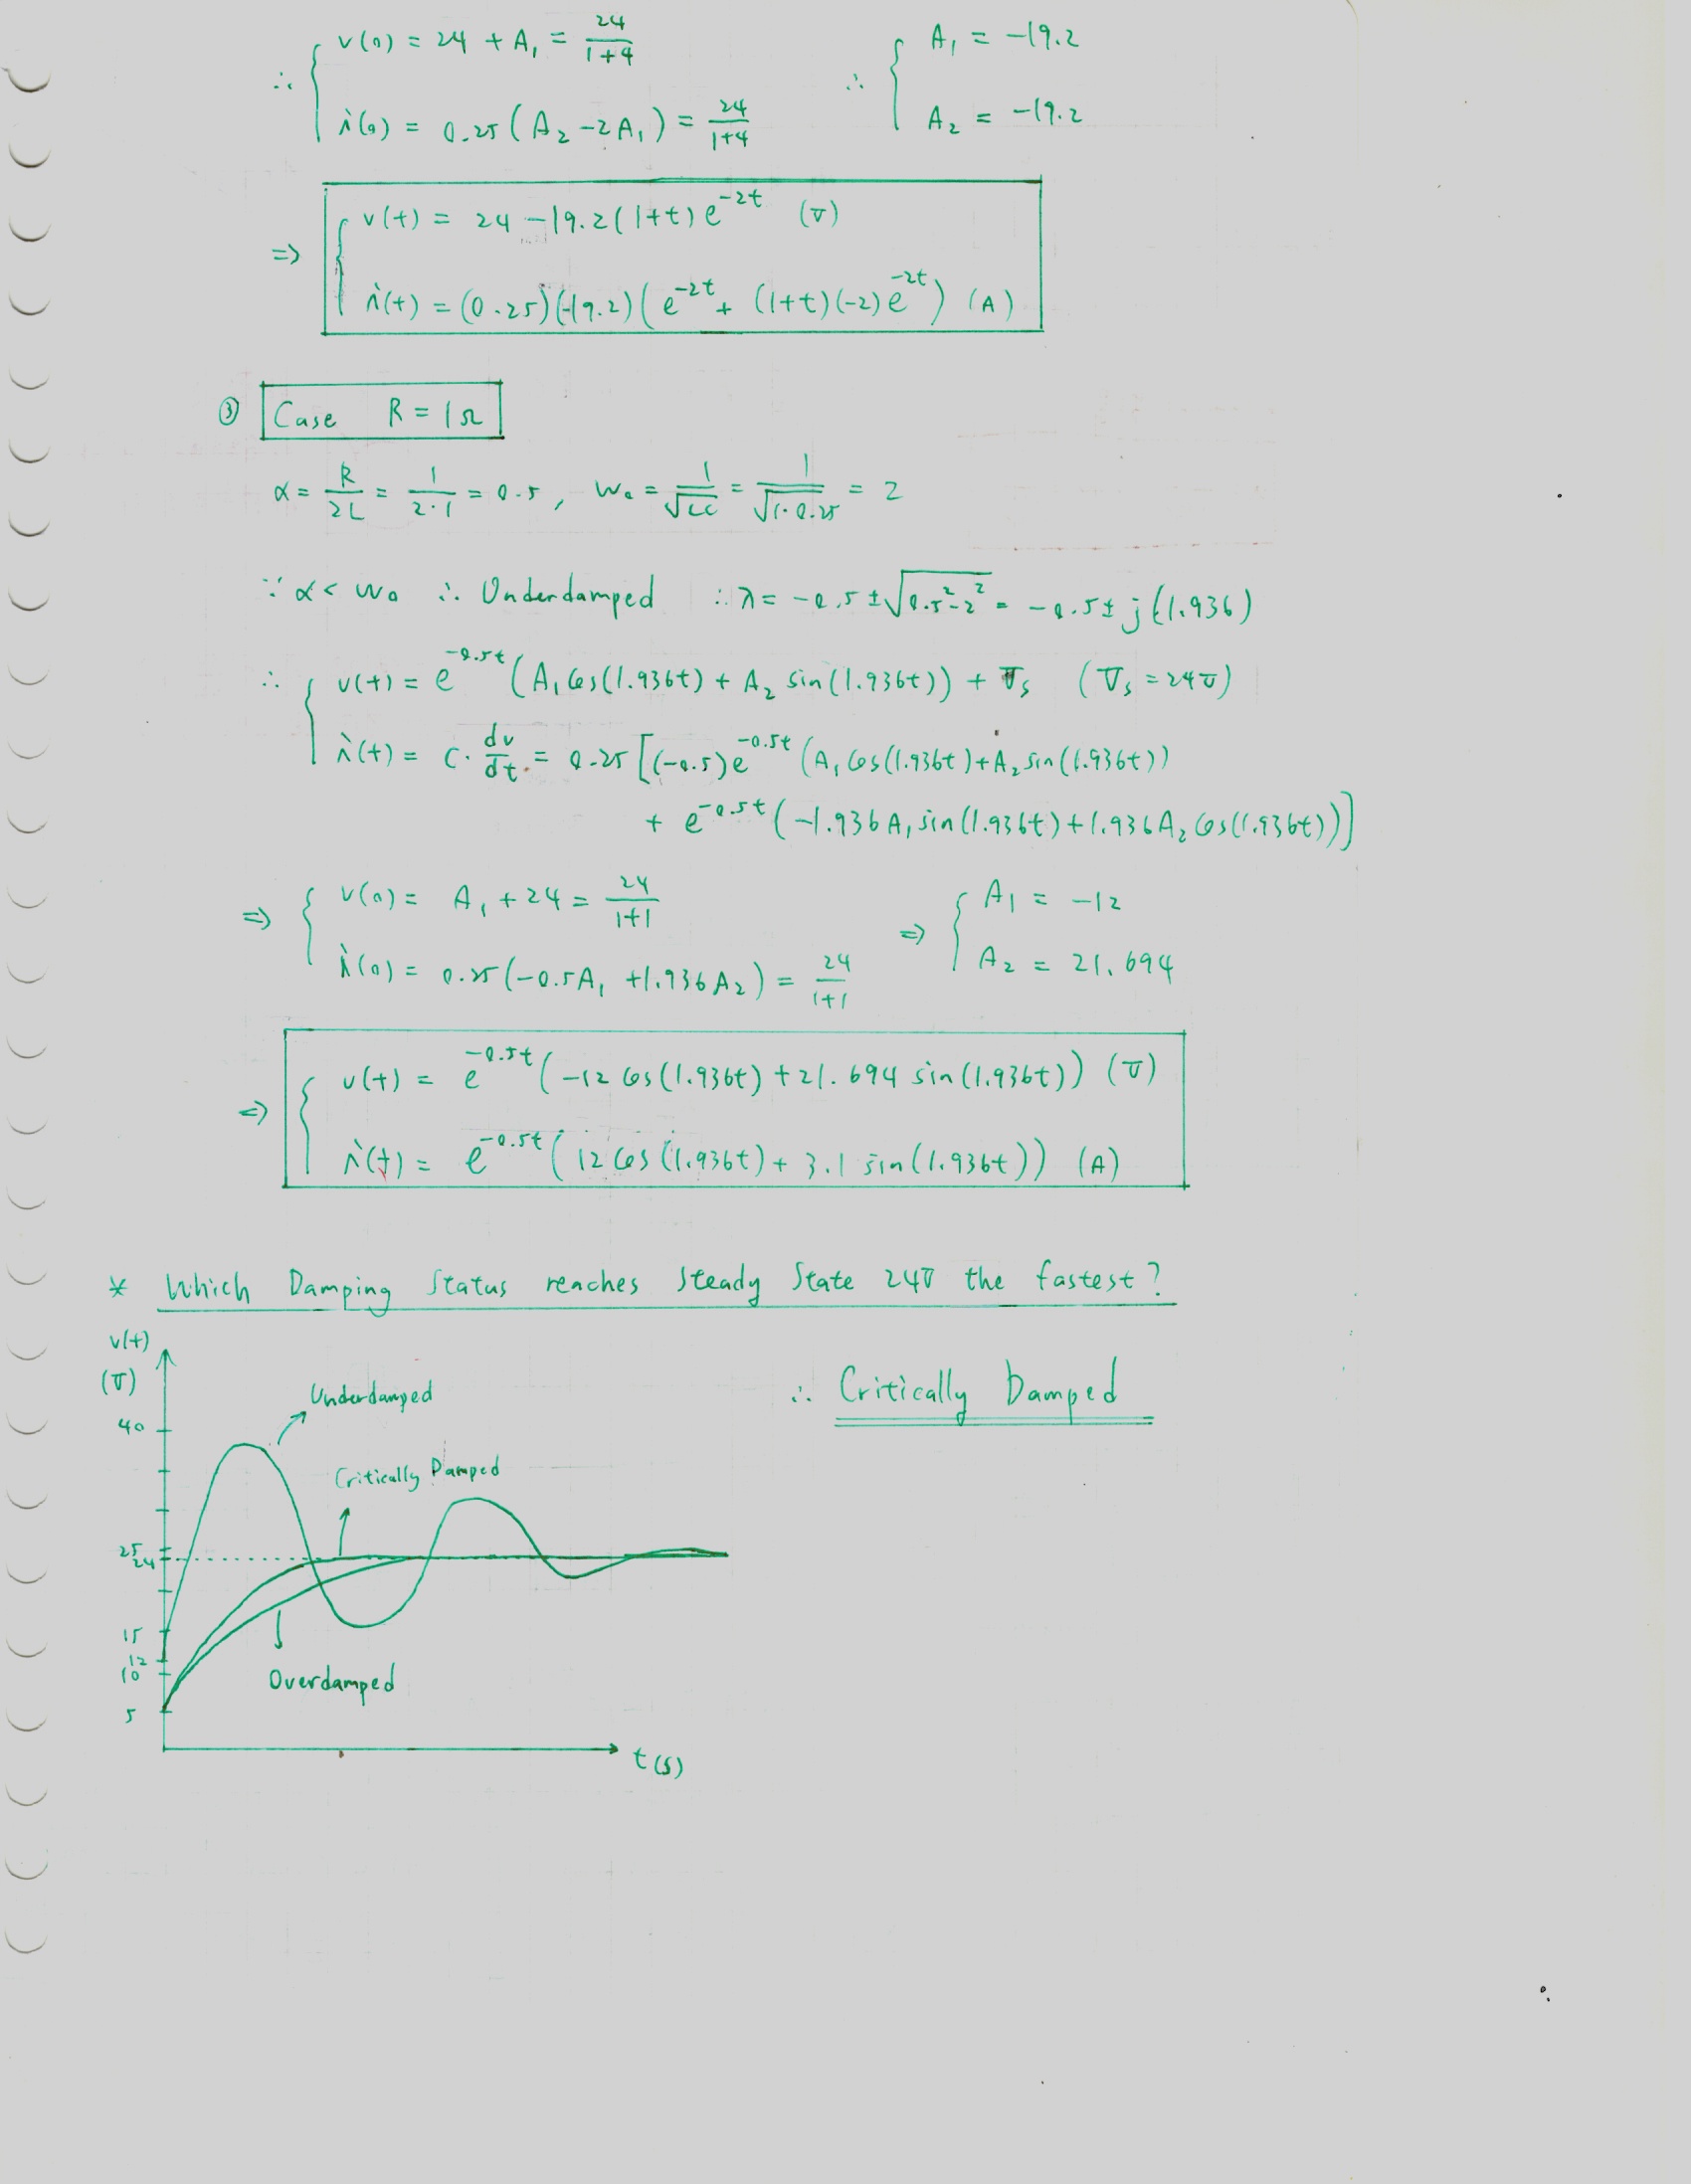 ∴ { v(0) = 24 + A₁ = 24/(1+4) ∴ { A₁ = -19.2
i(0) = 0.25 (A₂ - 2A₁) = 24/(1+4) A₂ = -19.2
⇒ { v(t) = 24 - 19.2(1+t) e^(-2t) (V)
i(t) = (0.25)(-19.2)(e^(-2t) + (1+t)(-2) e^(-2t)) (A)
③ Case R = 1Ω
α = R/2L = 1/(2·1) = 0.5, W₀ = 1/√LC = 1/√(1·0.25) = 2
∵ α < W₀ ∴ Underdamped ∴ λ = -0.5 ± √(0.5² - 2²) = -0.5 ± j(1.936)
∴ { v(t) = e^(-0.5t) (A₁ cos(1.936t) + A₂ sin(1.936t)) + Vs (Vs = 24V)
i(t) = C · dv/dt = 0.25 [(-0.5) e^(-0.5t) (A₁ cos(1.936t) + A₂ sin(1.936t))
+ e^(-0.5t) (-1.936 A₁ sin(1.936t) + 1.936 A₂ cos(1.936t))]
⇒ { v(0) = A₁ + 24 = 24/(1+1) ⇒ { A₁ = -12
i(0) = 0.25 (-0.5A₁ + 1.936 A₂) = 24/(1+1) A₂ = 21.694
⇒ { v(t) = e^(-0.5t) (-12 cos(1.936t) + 21.694 sin(1.936t)) (V)
i(t) = e^(-0.5t) (12 cos(1.936t) + 3.1 sin(1.936t)) (A)
* Which Damping Status reaches Steady State 24V the fastest?
v(t)
(V)
Underdamped
∴ Critically Damped
40
Critically Damped
25
24
15
12
10
Overdamped
5
t(s)